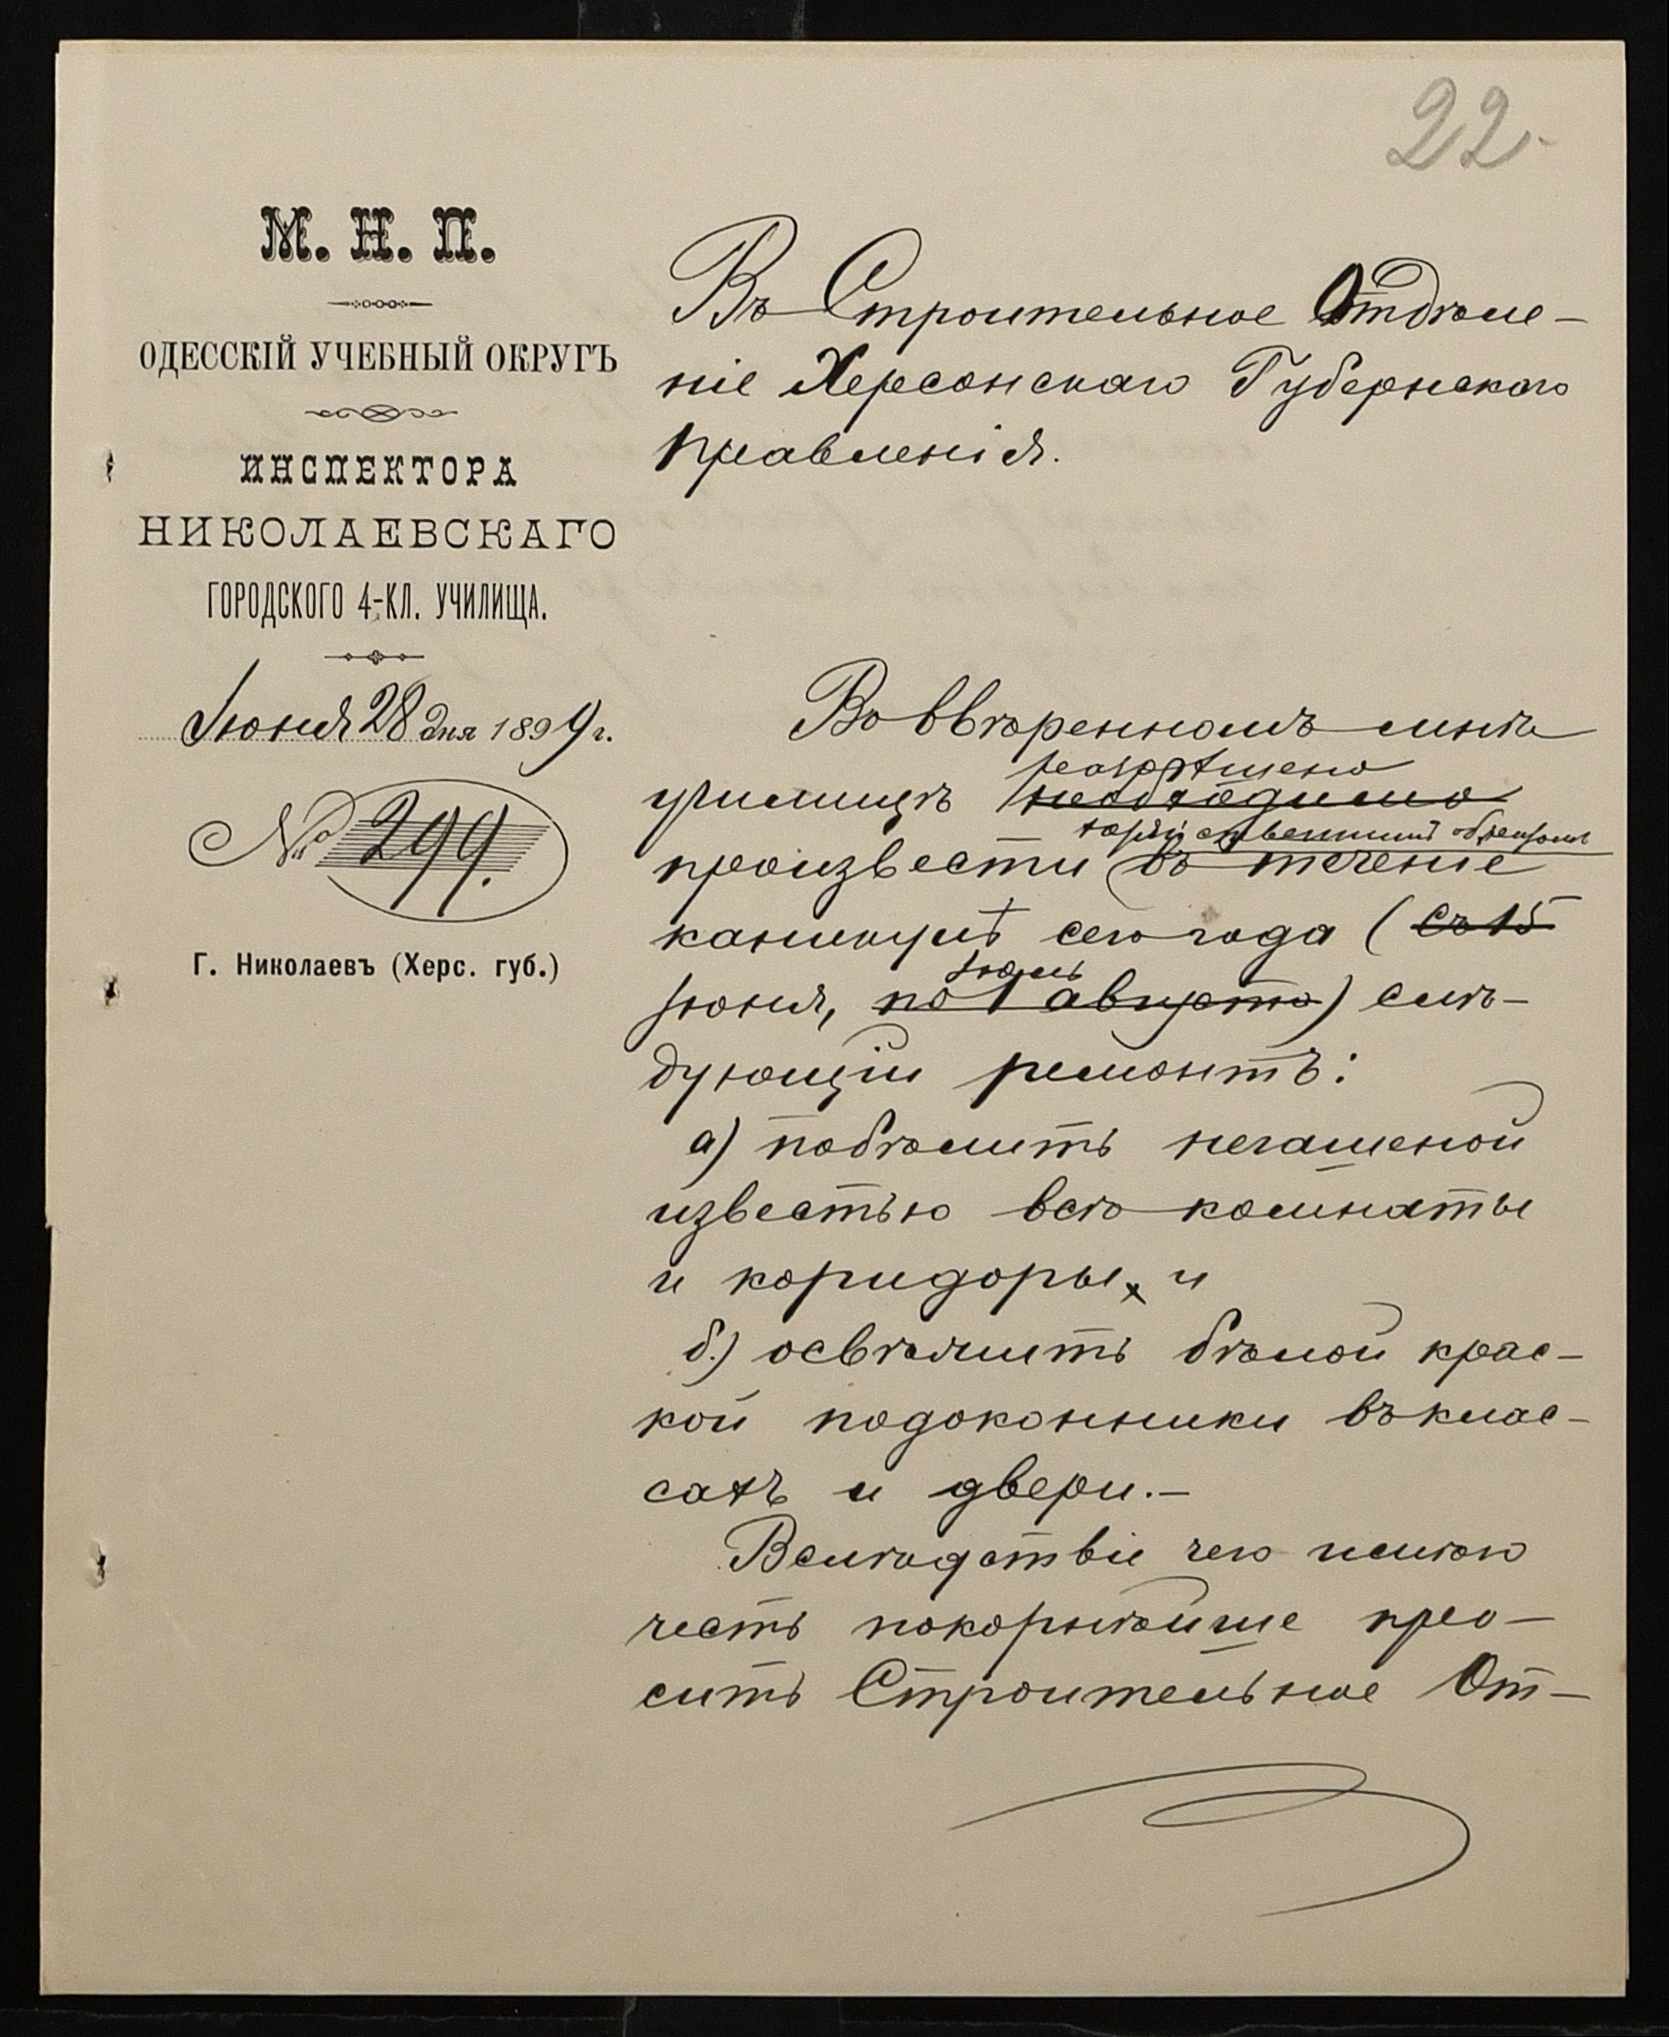 22.
М. Н. П.
ОДЕССКІЙ УЧЕБНЫЙ ОКРУГЪ
ИНСПЕКТОРА
НИКОЛАЕВСКАГО
ГОРОДСКОГО 4-КЛ. УЧИЛИЩА.
Іюня 28 дня 1899 г.
№ 299.
Г. Николаевъ (Херс. губ.)
Въ Строительное Отдѣле-
ніе Херсонскаго Губернскаго
Правленія.
Во ввѣренномъ мнѣ
разрѣшено
училищѣ необходимо
хозяйственнымъ образомъ
произвести въ теченіе
каникулъ сего года (съ 15
іюль
іюня, по 1 августа) слѣ-
дующій ремонтъ:
а) побѣлить негашеной
известью всѣ комнаты
и коридоры, и
б.) освѣжить бѣлой крас-
кой подоконники въ клас-
сахъ и двери.-
Вслѣдствіе чего имѣю
честь покорнѣйше про-
сить Строительное От-